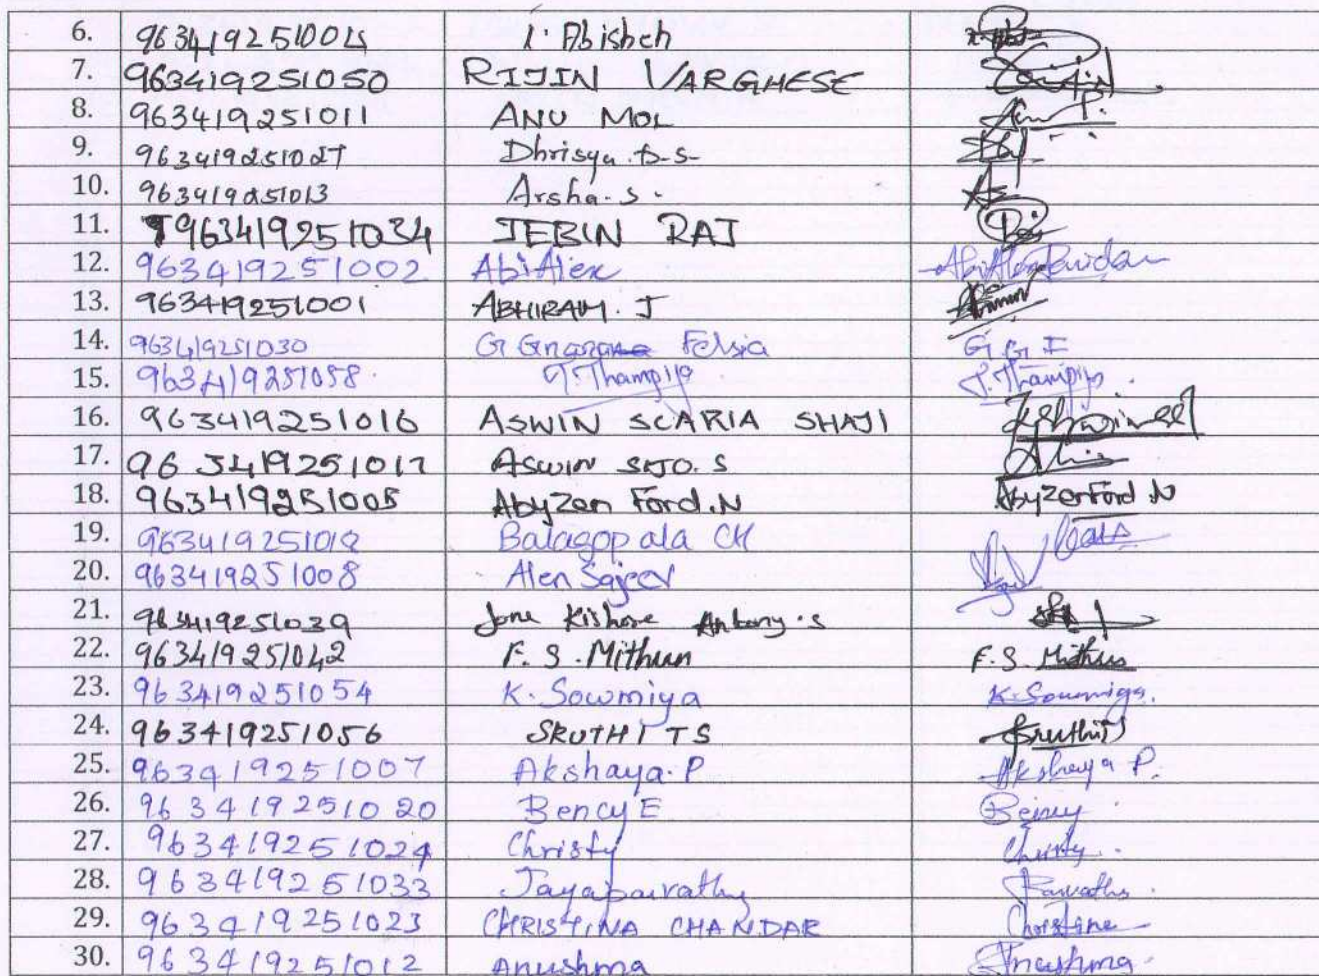 6. 963419251004 I. Abishek
7. 963419251050 RIJIN VARGHESE
8. 963419251011 ANU MOL Anu P.
9. 963419251027 Dhrisya.D.S-
10. 963419251013 Arsha.S. As
11. 963419251034 JEBIN RAJ
12. 963419251002 Abi Alex
13. 963419251001 ABHIRAM. J
14. 963419251030 G Felsia G G F
15. 963419251058. J. Thampi J. Thampi
16. 963419251016 ASWIN SCARIA SHAJI
17. 963419251017 ASWIN SIJO.S
18. 963419251005 Abyzen Ford.N Abyzen Ford.N
19. 963419251018 Balagopala CH Bala
20. 963419251008 Alen Sajeev
21. 963419251039 Jone Kishore Antony.S
22. 963419251042 F. S. Mithun F. S. Mithun
23. 963419251054 K. Sowmiya K. Sowmiya.
24. 963419251056 SRUTHI TS Sruthi TS
25. 963419251007 Akshaya.P Akshaya P.
26. 963419251020 Bency E Bency
27. 963419251024 Christy Christy.
28. 963419251033 Jayaparvathy Parvathy.
29. 963419251023 CHRISTINA CHANDAR Christina
30. 963419251012 Anushma Anushma